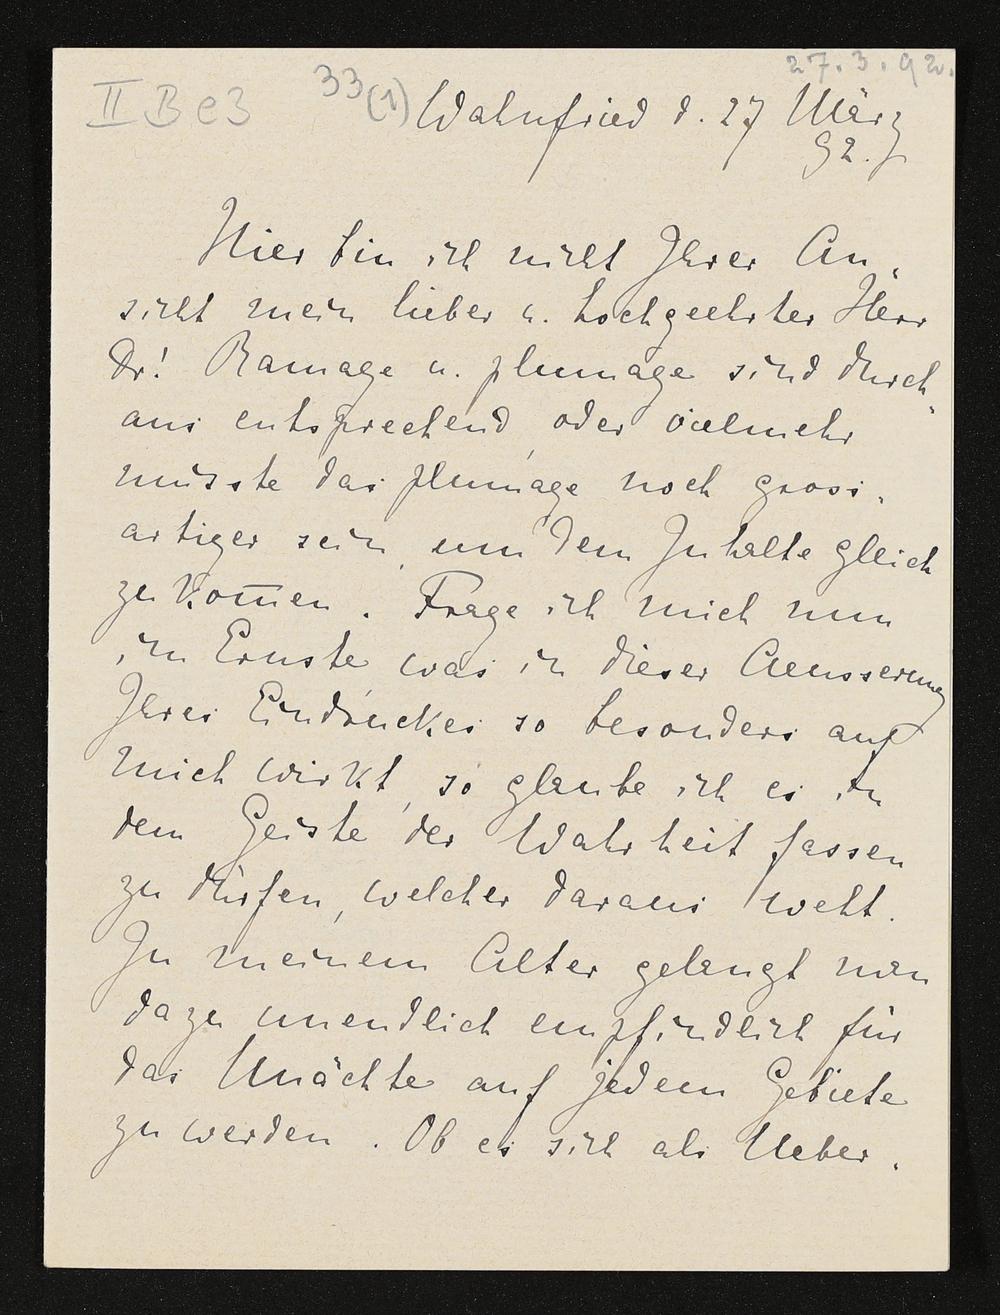 27.3.92.
II B e 3
33 (1)
Wahnfried d. 27 März
92.
Hier bin ich nicht Ihrer An-
sicht mein lieber u. hochgeehrter Herr
Dr! Ramage u. plumage sind durch-
aus entsprechend, oder vielmehr
müsste das plumage noch gross-
artiger sein, um dem Inhalte gleich
zu kom̅en. Frage ich mich nun
im Ernste, was in dieser Aeusserung
Ihres Eindruckes so besonders auf
mich wirkt, so glaube ich es in
dem Geiste der Wahrheit fassen
zu dürfen, welcher daraus weht.
In meinem Alter gelangt man
dazu unendlich empfindlich für
das Unächte auf jedem Gebiete
zu werden. Ob es sich als Ueber-